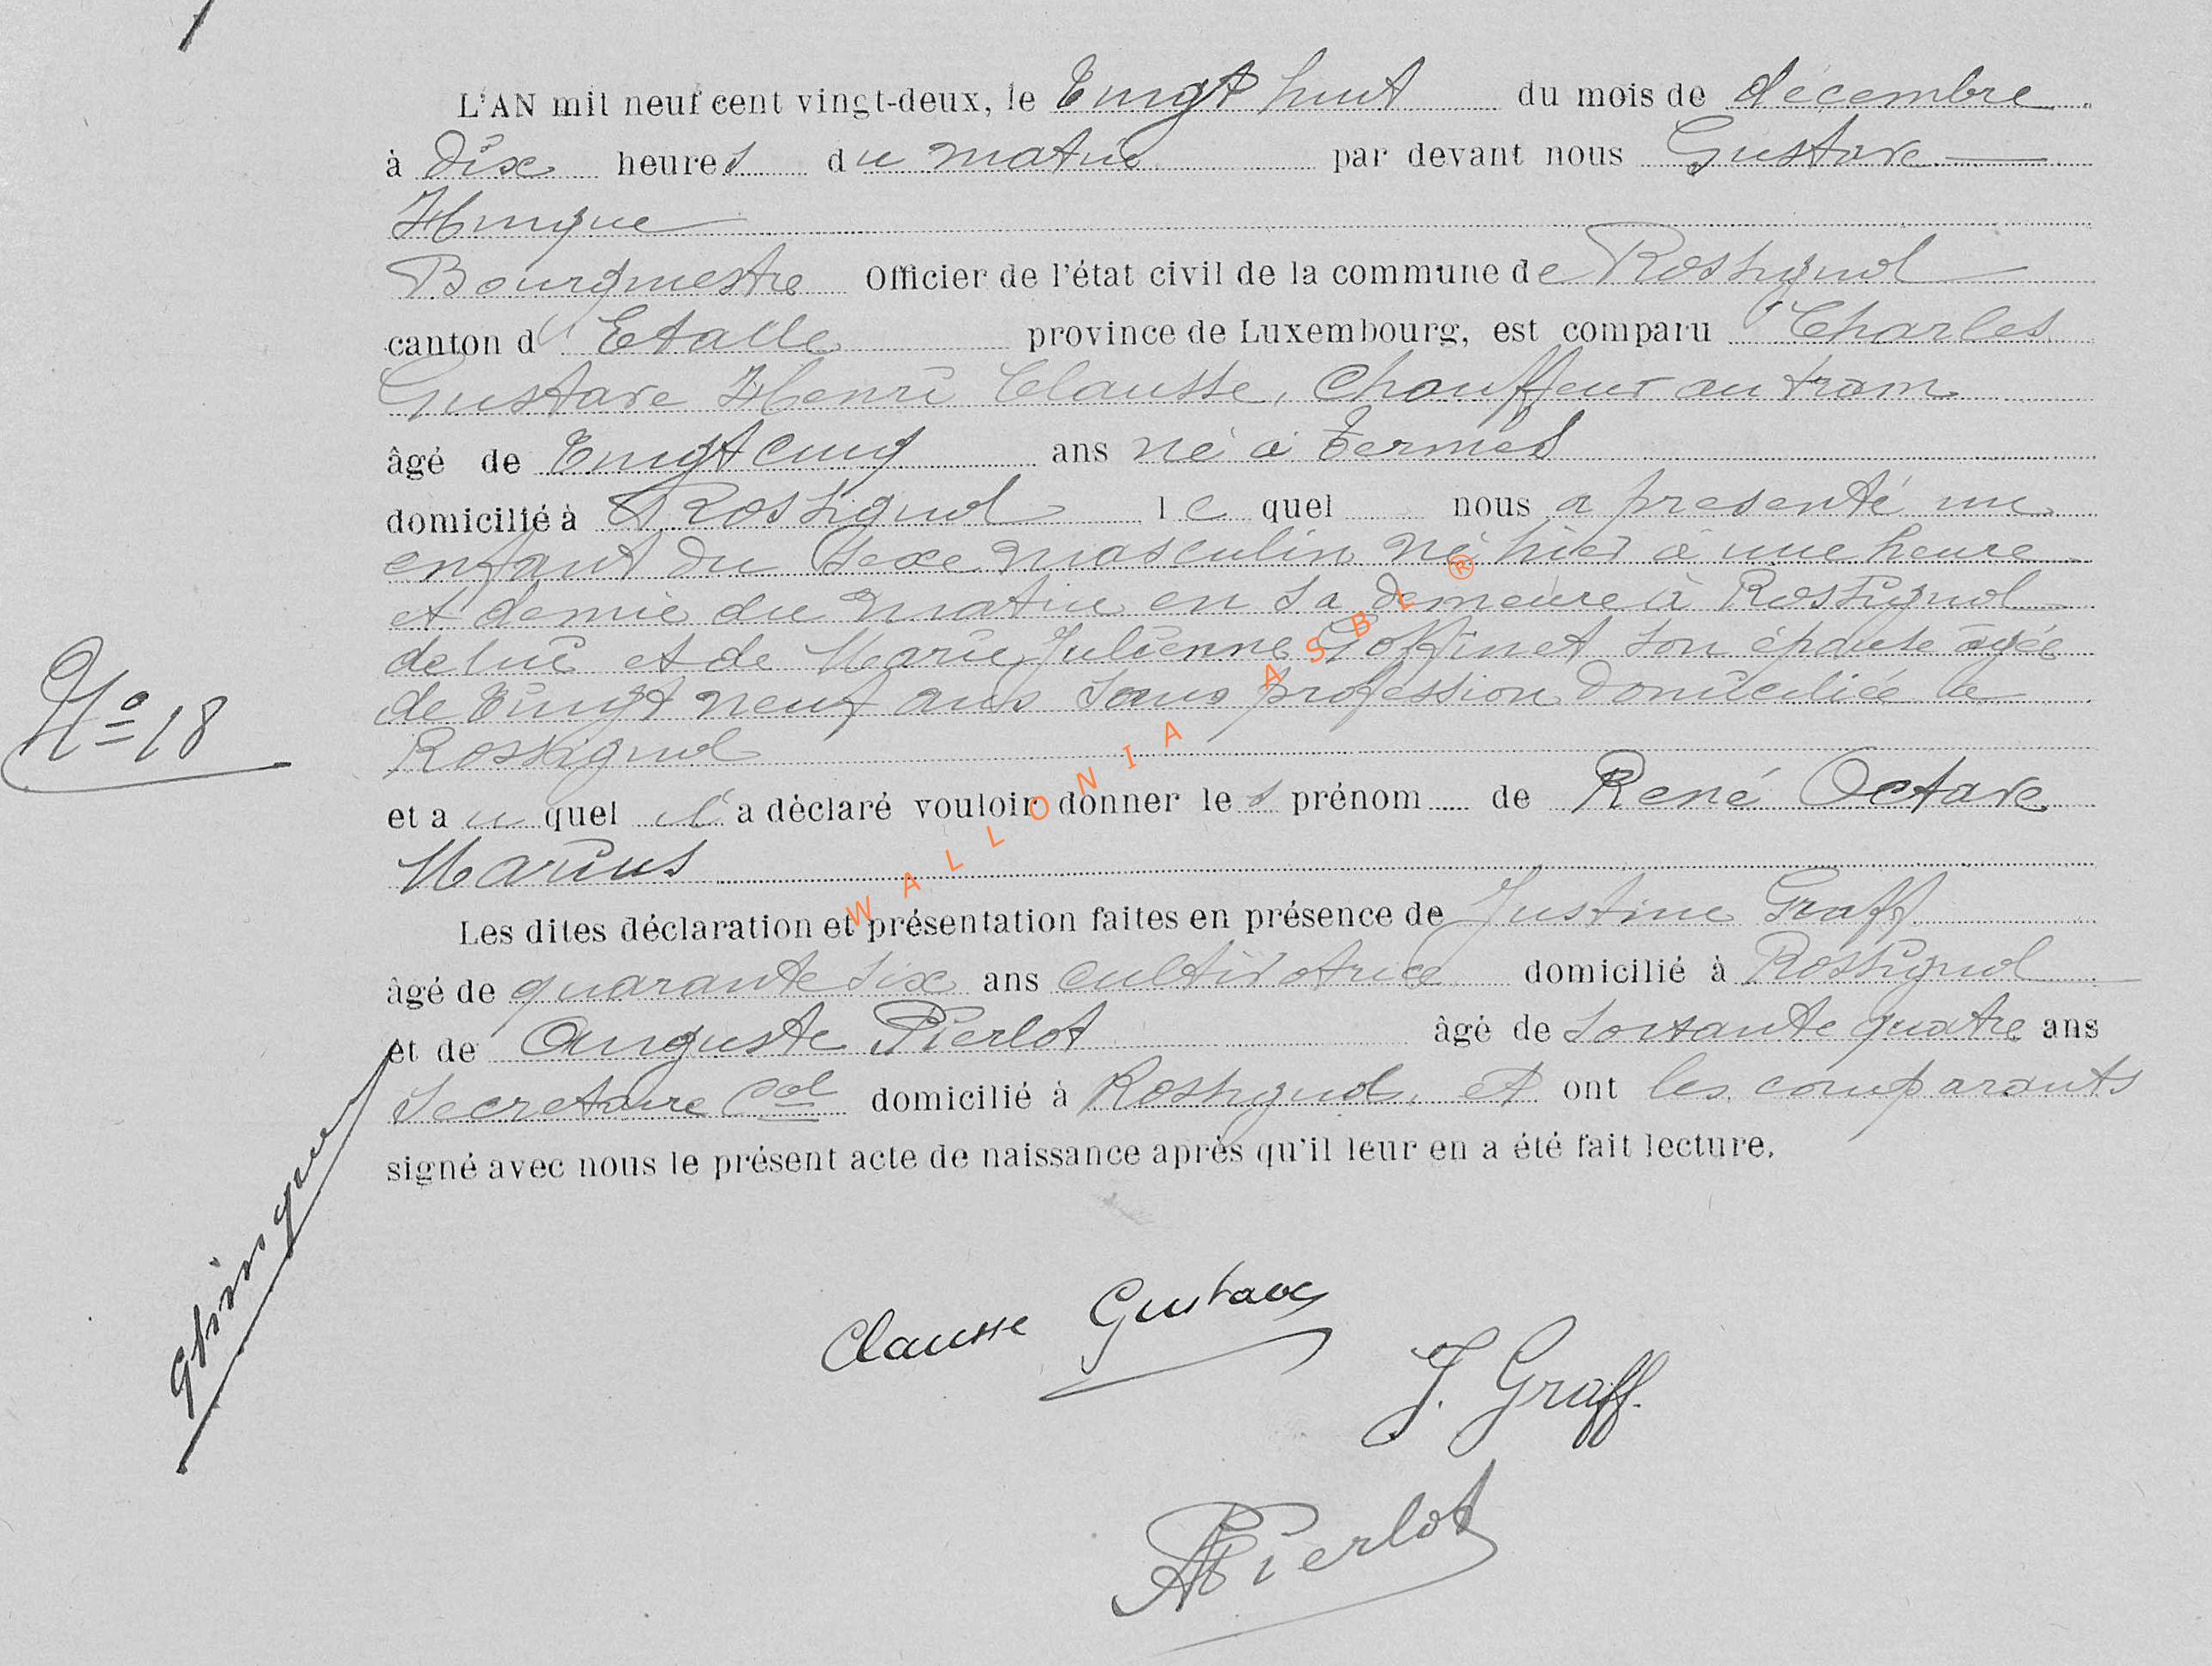 L'AN mil neuf cent vingt-deux, le Vingt huit du mois de décembre
à dix heures du matin par devant nous Gustave
Hinque
Bourgmestre Officier de l'état civil de la commune de Rossignol
canton d'Etalle province de Luxembourg, est comparu Charles
Gustave Henri Clausse, Chauffeur au tram
âgé de Vingt cinq ans né à Termes
domicilié à Rossignol lequel nous a presenté un
enfant du sexe masculin né hier à une heure
et demie du matin en sa demeure à Rossignol
de lui et de Marie Julienne son épouse agée
de Vingt neuf ans sans profession domiciliée à
Rossignol
et au quel il a déclaré vouloir donner les prénom de René Octave
Marius
Les dites déclaration et présentation faites en présence de Justine Graff
âgé de quarante six ans cultivatrice domicilié à Rossignol
et de Auguste Pierlot âgé de soixante quatre ans
Secretaire cal domicilié à Rossignol, et ont les comparants
signé avec nous le présent acte de naissance après qu'il leur en a été fait lecture.
N° 18
Hinque
Clausse Gustave
J. Graff.
A Pierlot
WALLONIA ASBL ®